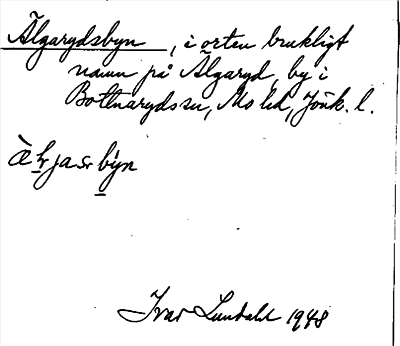 Älgarydsbyn, i orten brukligt
namn på Älgaryd, by i
Bottnaryds sn, Mo hd, Jönk. l.
Ivar Lundahl 1948